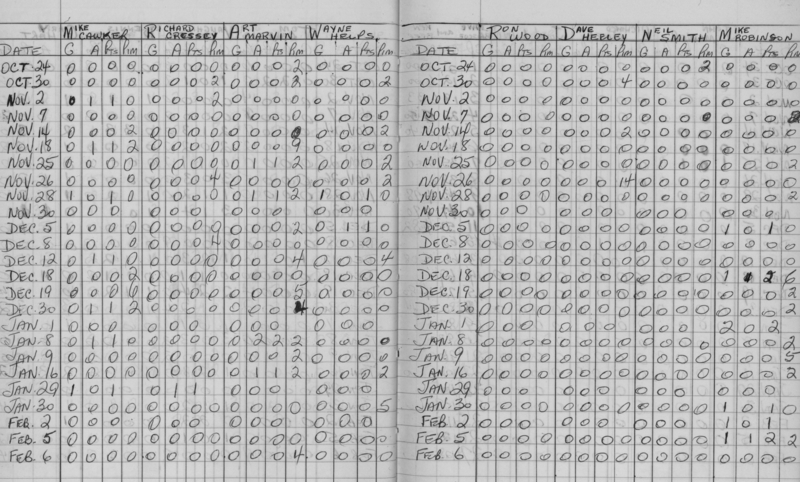 MIKE CAWKER RICHARD CRESSEY ART MARVIN WAYNE HELPS RON WOOD DAVE HEBLEY NEIL SMITH MIKE ROBINSON
DATE G A Pts Pim G A Pts Pim G A Pts Pim G A Pts Pim DATE G A Pts Pim G A Pts Pim G A Pts Pim G A Pts Pim
OCT. 24 0 0 0 0 0 0 0 0 0 0 0 2 0 0 0 0 OCT. 24 0 0 0 0 0 0 0 0 0 0 0 2 0 0 0 0
OCT 30 0 0 0 0 0 0 0 2 0 0 0 2 0 0 0 2 OCT. 30 0 0 0 0 0 0 0 4 0 0 0 0 0 0 0 0
NOV. 2 0 1 1 0 0 0 0 2 0 0 0 0 0 0 0 0 NOV. 2 0 0 0 0 0 0 0 0 0 0 0 0 0 0 0
NOV. 7 0 0 0 0 0 0 0 0 0 0 0 0 0 0 0 0 NOV. 7 0 0 0 0 0 0 0 0 0 0 0 0 0 0 0 2
NOV 14 0 0 0 2 0 0 0 0 0 0 0 0 0 0 0 2 NOV. 14 0 0 0 0 0 0 0 2 0 0 0 0 0 0 0 0
NOV. 18 0 1 1 2 0 0 0 0 0 0 0 9 0 0 0 0 NOV. 18 0 0 0 0 0 0 0 0 0 0 0 0 0 0 0 0
NOV. 25 0 0 0 0 0 0 0 0 0 1 1 2 0 0 0 2 NOV. 25 0 0 0 0 0 0 0 0 0 0 0 0 0 0 0 2
NOV. 26 0 0 0 0 0 0 0 4 0 0 0 0 0 0 0 2 NOV. 26 0 0 0 0 0 0 0 14 0 0 0 0 0 0 0 0
NOV. 28 1 0 1 0 0 0 0 0 0 1 1 2 1 0 1 0 NOV. 28 0 0 0 0 0 0 0 0 0 0 0 0 0 0 0 2
NOV. 30 0 0 0 0 0 0 0 0 0 0 0 0 NOV. 30 0 0 0 0 0 0
DEC. 5 0 0 0 0 0 0 0 0 0 0 0 2 0 1 1 0 DEC. 5 0 0 0 0 0 0 0 0 0 0 0 0 1 0 1 0
DEC. 8 0 0 0 0 0 0 0 4 0 0 0 0 0 0 0 0 DEC. 8 0 0 0 0 0 0 0 0 0 0 0 0 0 0 0 0
DEC. 12 0 1 1 0 0 0 0 0 0 0 0 4 0 0 0 4 DEC. 12 0 0 0 0 0 0 0 0 0 0 0 0 0 0 0 0
DEC. 18 0 0 0 2 0 0 0 0 0 0 0 0 0 0 0 0 DEC. 18 0 0 0 0 0 0 0 0 0 0 0 0 1 2 6
DEC. 19 0 0 0 6 0 0 0 0 0 0 0 5 0 0 0 0 DEC. 19 0 0 0 0 0 0 0 0 0 0 0 0 0 0 0 2
DEC. 30 0 1 1 2 0 0 0 0 0 0 0 4 0 0 0 0 DEC. 30 0 0 0 0 0 0 0 0 0 0 0 0 0 0 0 2
JAN. 1 0 0 0 0 0 0 0 0 0 0 0 0 JAN. 1 0 0 0 0 0 0 0 0 0 2 0 2
JAN. 8 0 1 1 0 0 0 0 0 0 2 2 2 0 0 0 0 JAN. 8 0 0 0 0 0 0 0 0 0 0 0 0 0 0 0 2
JAN. 9 0 0 0 0 0 0 0 0 0 0 0 2 0 0 0 0 JAN. 9 0 0 0 0 0 0 0 0 0 0 0 0 0 0 0 5
JAN. 16 0 0 0 0 0 0 0 0 0 1 1 2 0 0 0 2 JAN. 16 0 0 0 0 0 0 0 0 0 0 0 0 0 0 0 2
JAN. 29 1 0 1 0 1 1 0 0 0 0 0 0 JAN. 29 0 0 0 0 0 0 0 0 0 0 0 0
JAN. 30 0 0 0 0 0 0 0 0 0 0 0 0 0 0 0 5 JAN. 30 0 0 0 0 0 0 0 0 0 0 0 0 1 0 1 0
FEB. 2 0 0 0 0 0 0 0 0 0 0 0 0 FEB. 2 0 0 0 0 0 0 0 0 0 1 0 1
FEB. 5 0 0 0 0 0 0 0 0 0 0 0 0 0 0 0 0 FEB. 5 0 0 0 0 0 0 0 0 0 0 0 0 1 1 2 2
FEB. 6 0 0 0 0 0 0 0 0 0 0 0 4 0 0 0 0 FEB. 6 0 0 0 0 0 0 0 0 0 0 0 0 0 0 0 0